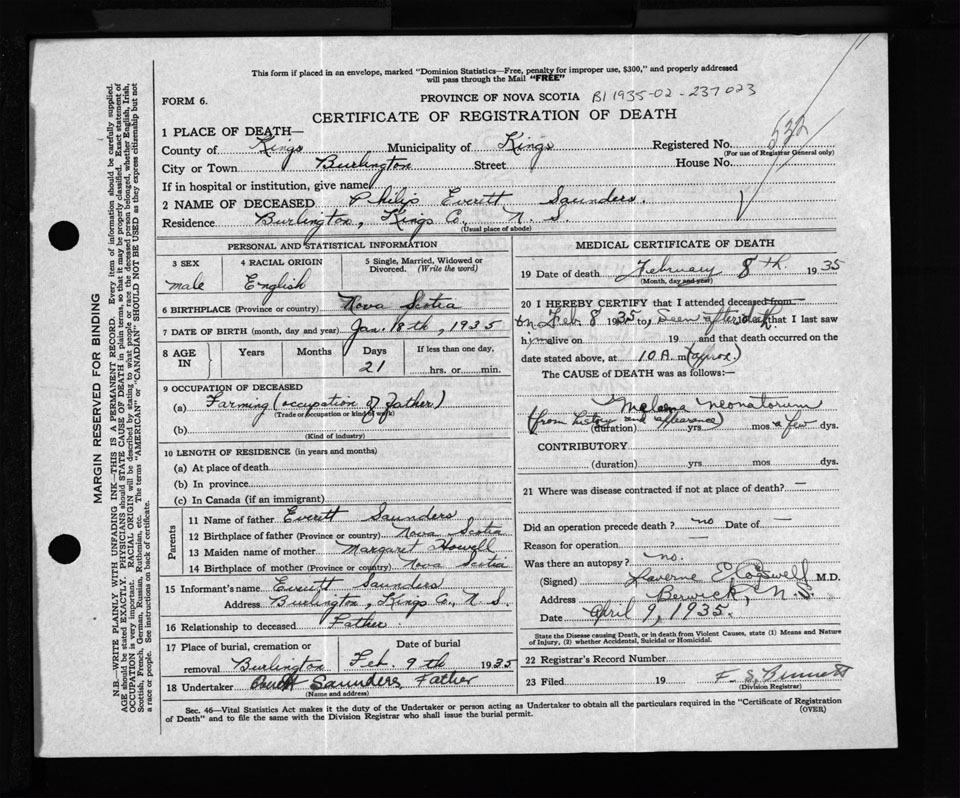 This form if placed in an envelope, marked "Dominion Statistics—Free, penalty for improper use, $300," and properly addressed
will pass through the Mail "FREE"
FORM 6.
PROVINCE OF NOVA SCOTIA B1 1935-02-237023
CERTIFICATE OF REGISTRATION OF DEATH
532
1 PLACE OF DEATH—
County of Kings Municipality of Kings Registered No.
(For use of Registrar General only)
City or Town Burlington Street House No.
If in hospital or institution, give name
2 NAME OF DECEASED Philip Everitt Saunders.
Residence Burlington, Kings Co., N. S.
(Usual place of abode)
PERSONAL AND STATISTICAL INFORMATION
3 SEX 4 RACIAL ORIGIN 5 Single, Married, Widowed or
Divorced. (Write the word)
male English
6 BIRTHPLACE (Province or country) Nova Scotia
7 DATE OF BIRTH (month, day and year) Jan. 18th, 1935
8 AGE IN Years Months Days If less than one day,
21 hrs. or min.
9 OCCUPATION OF DECEASED
(a) Farming (occupation of father)
(Trade or occupation or kind of work)
(b)
(Kind of industry)
10 LENGTH OF RESIDENCE (in years and months)
(a) At place of death
(b) In province
(c) In Canada (if an immigrant)
Parents
11 Name of father Everitt Saunders
12 Birthplace of father (Province or country) Nova Scotia
13 Maiden name of mother Margaret Howell
14 Birthplace of mother (Province or country) Nova Scotia
15 Informant's name Everitt Saunders
Address Burlington, Kings Co., N. S.
16 Relationship to deceased Father.
17 Place of burial, cremation or Date of burial
removal Burlington Feb. 9th 1935
18 Undertaker Everitt Saunders, Father
(Name and address)
MEDICAL CERTIFICATE OF DEATH
19 Date of death February 8th. 1935
(Month, day and year)
20 I HEREBY CERTIFY that I attended deceased from
on Feb. 8 1935 to, Seen after death that I last saw
him alive on 19 and that death occurred on the
date stated above, at 10 A. m (aprox.)
The CAUSE of DEATH was as follows:—
Melaena neonatorum
(from history and appearance)
(duration) yrs. mos a few dys.
CONTRIBUTORY
(duration) yrs mos. dys.
21 Where was disease contracted if not at place of death? —
Did an operation precede death? no Date of —
Reason for operation —
Was there an autopsy? no.
(Signed) Laverne E. Cogswell M.D.
Address Berwick, N.S.
Date April 9, 1935.
State the Disease causing Death, or in death from Violent Causes, state (1) Means and Nature
of Injury, (2) whether Accidental, Suicidal or Homicidal.
22 Registrar's Record Number
23 Filed 19 F. S. Bennett
(Division Registrar)
Sec. 46—Vital Statistics Act makes it the duty of the Undertaker or person acting as Undertaker to obtain all the particulars required in the "Certificate of Registration
of Death" and to file the same with the Division Registrar who shall issue the burial permit.
(OVER)
MARGIN RESERVED FOR BINDING
N.B.—WRITE PLAINLY WITH UNFADING INK—THIS IS A PERMANENT RECORD. Every item of information should be carefully supplied.
AGE should be stated EXACTLY. PHYSICIANS should STATE CAUSE OF DEATH in plain terms, so that it may be properly classified. Exact statement of
OCCUPATION is very important. RACIAL ORIGIN will be described by stating to what people or race the deceased person belonged, whether English, Irish,
Scottish, French, German, Russian, Ruthenian, etc. The terms "AMERICAN" or "CANADIAN" SHOULD NOT BE USED as they express citizenship but not
a race or people. See instructions on back of certificate.